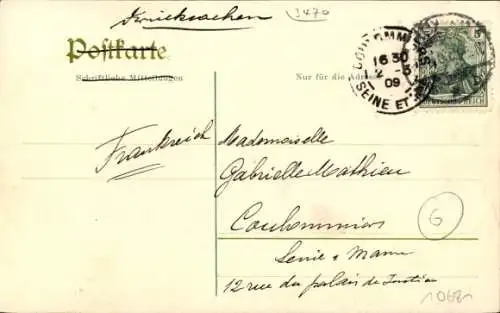 Drucksachen
3470
Postkarte
Schriftliche Mitteilungen
Nur für die Adresse
COULOMMIERS
16 30
2 - 5
09
SEINE ET
5
DEUTSCHES REICH
Frankreich
Mademoiselle
Gabrielle Mathieu
Coulommiers
Seine & Marne
12 rue du palais de Justice
G
10681